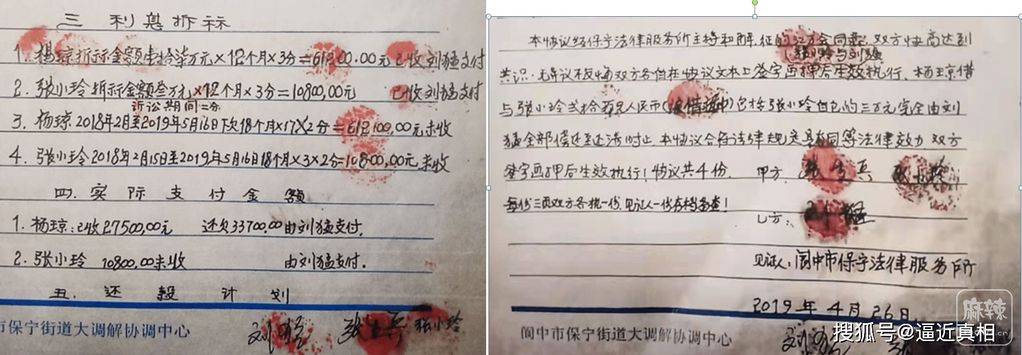 三 利息拆标
1. 杨琼拆示金额壹拾柒万元×12个月×3分=61200.00元 已收刘猛支付
2. 张小玲拆示金额叁万元×12个月×3分=10800.00元 已收刘猛支付
诉讼期间二分
3. 杨琼2018年2月至2019年5月16日下欠18个月×17×2分=61200,00元未收
4. 张小玲2018年2月15日至2019年5月16日18个月×3×2分=10800,00元未收
四. 实际支付金额
1. 杨琼:已收27500,00元 还欠33700,00由刘猛支付.
2. 张小玲 10800.00未收 由刘猛支付.
五. 还款计划
市保宁街道大调解协调中心
刘猛 张小玲
本协议经保宁法律服务所主持和
双方快高达到
共识.
双方各自在协议文本上签字画押后生效执行.
与张小玲贰拾万元人民币
包括张小玲自己的三万元完全由刘
猛全部偿还至还清时止.本协议合符法律规定具有同等法律效力 双方
签字画押后生效执行!协议共4份. 甲方: 张小玲
每份三页双方各执一份,见证人一份存档备查!
乙方:
见证人:阆中市保宁法律服务所
2019年4月26日.
阆中市保宁街道大调解协调中心
麻辣
搜狐号@逼近真相